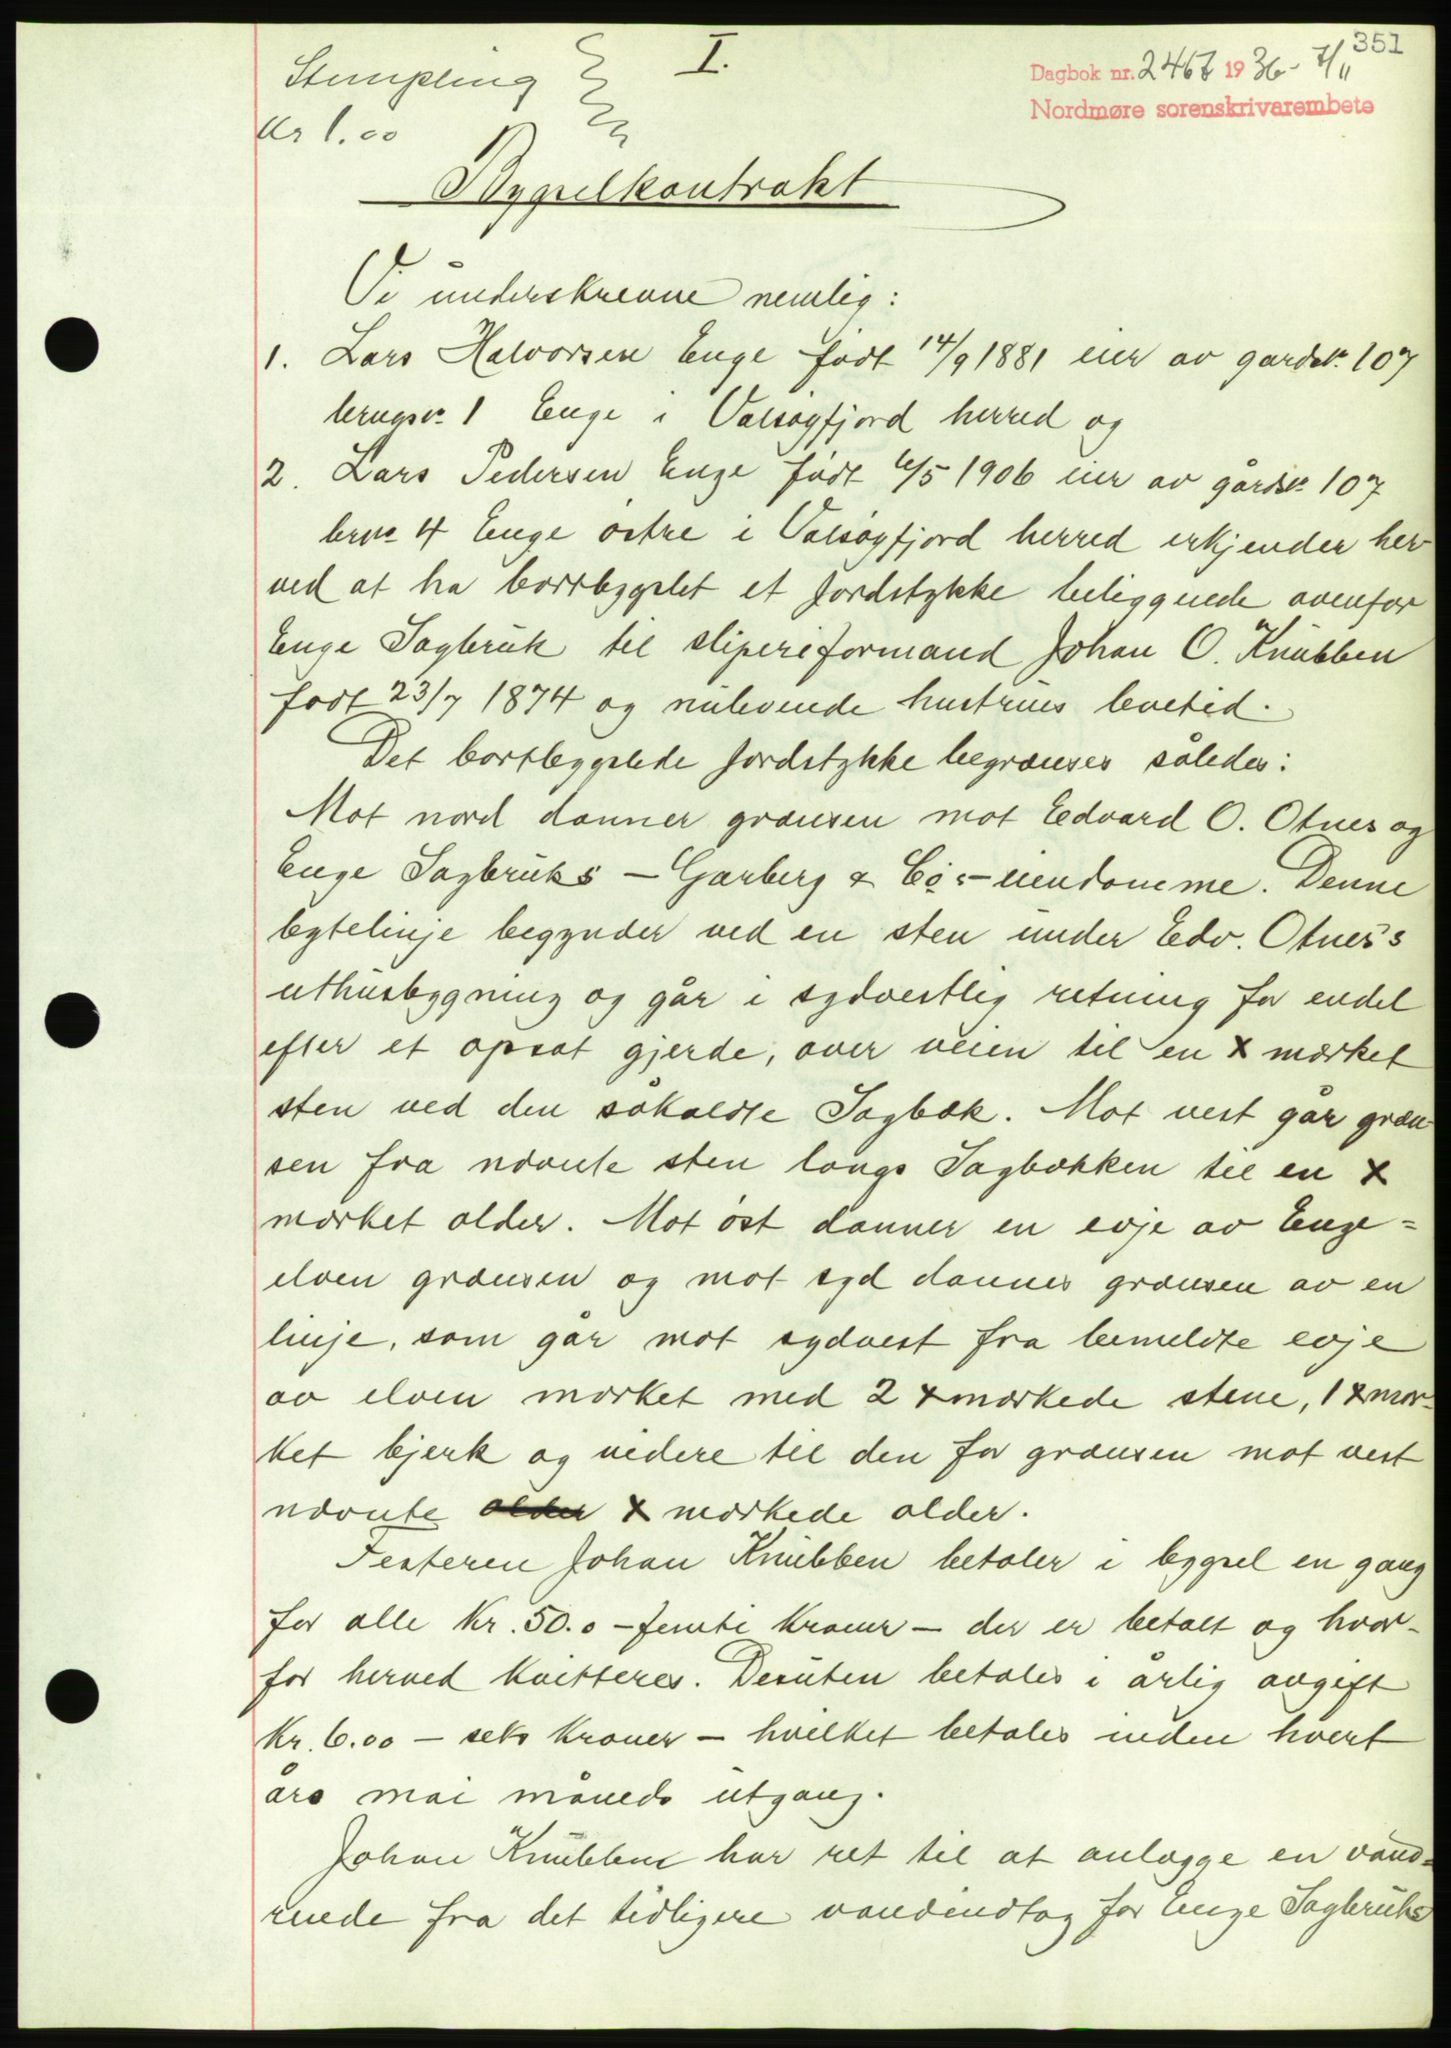 351
I.
Stempling
Kr 1.00
Dagbok nr. 2467 1936 - 7/11
Nordmøre sorenskrivarembete
Bygselkontrakt
Vi underskrevne nemlig:
1. Lars Halvorsen Enge født 14/9 1881 eier av gardsnr. 107
brugsnr. 1 Enge i Valsøyfjord herred og
2. Lars Pedersen Enge født 6/5 1906 eier av gårdsnr. 107
brnr. 4 Enge østre i Valsøyfjord herred erkjender her-
ved at ha bortbygslet et jordstykke beliggende ovenfor
Enge Sagbruk til sliperiformand Johan O. Knubben
født 23/7 1874 og nulevende hustrues levetid.
Det bortbygslede jordstykke begrænses således:
Mot nord danner grænsen mot Edvard O. Otnes og
Enge Sagbruks - Garberg & Co's - eiendomme. Denne
bytelinje begynder ved en sten under Edv. Otnes's
uthusbygning og går i sydvestlig retning for endel
efter et opsat gjerde, over veien til en x mærket
sten ved den såkaldte Sagbæk. Mot vest går græn-
sen fra nævnte sten langs Sagbækken til en x
mærket older. Mot øst danner en evje av Enge=
elven grænsen og mot syd dannes grænsen av en
linje, som går mot sydvest fra bemeldte evje
av elven mærket med 2 x mærkede stene, 1 x mær-
ket bjerk og videre til den for grænsen mot vest
nævnte older x mærkede older.
Festeren Johan Knubben betaler i bygsel en gang
for alle Kr. 50.0 - femti kroner - der er betalt og hvor-
for herved kvitteres. Desuten betales i årlig avgift
Kr. 6.00 - seks kroner - hvilket betales inden hvert
års mai måneds utgang.
Johan Knubben har ret til at anlægge en vand=
rende fra det tidligere vandindtag for Enge Sagbruks